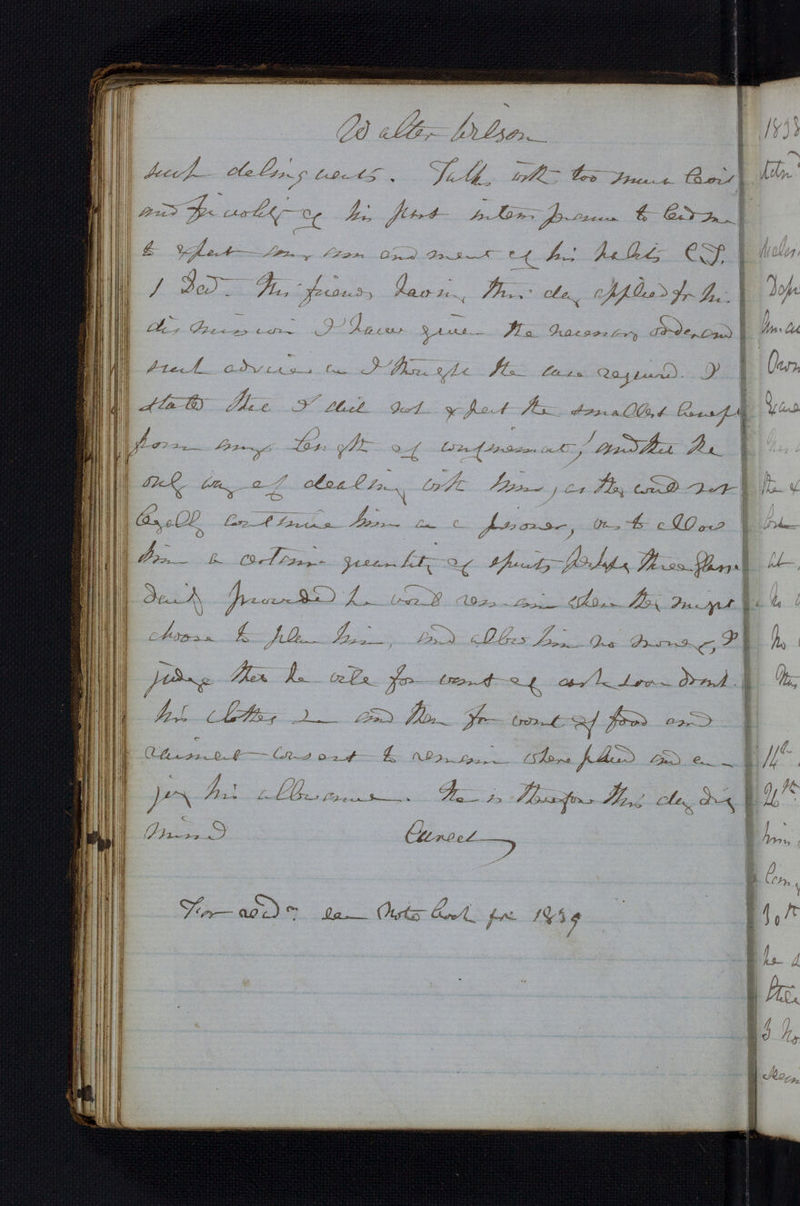 Walter Wilson
such delinquents. Talks with too much levit
and frivolity of his past intemperance to lead me
to expect any ammendment of his habits C.S.
1 Decr. His friends having this day applied for his
dismission I have given the necessary order and
such advice as I thought the case required. I
stated that I did not expect the smallest benefit
from any length of confinement, and that the
only way of dealing with him, as they could not
legally continue him as a prisoner, was to allow
him a certain quantity of spirits perhaps three glasses
daily provided he would remain where they might
choose to place him, and allow him no money, I
judge that he will for want of cash soon drink
his clothes and then for want of food and
raiment consent to remain where placed and en-
joy his allowance. He is therefore this day dis
missed Cured
For readn. see Note book for 1839
1838
14th
26th
him
30th
he
3 No